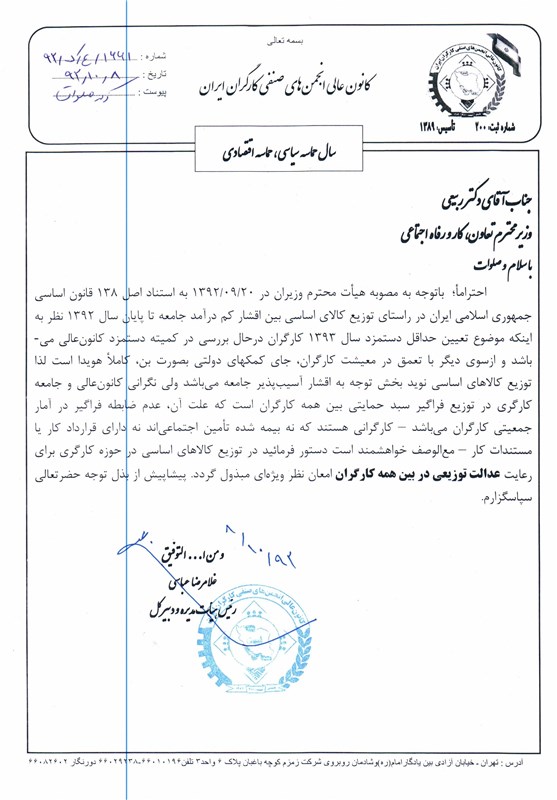 بسمه تعالی
کانون عالی انجمن‌های صنفی کارگران ایران
شماره : ۱۶۶۱/ع/ک/۹۲
تاریخ : ۹۲،۱۰،۸
پیوست :
شماره ثبت: ۲۰۰ تأسیس: ۱۳۸۹
سال حماسه سیاسی، حماسه اقتصادی
جناب آقای دکتر ربیعی
وزیر محترم تعاون، کار و رفاه اجتماعی
با سلام و صلوات
احتراماً؛ باتوجه به مصوبه هیأت محترم وزیران در ۱۳۹۲/۰۹/۲۰ به استناد اصل ۱۳۸ قانون اساسی
جمهوری اسلامی ایران در راستای توزیع کالای اساسی بین اقشار کم درآمد جامعه تا پایان سال ۱۳۹۲ نظر به
اینکه موضوع تعیین حداقل دستمزد سال ۱۳۹۳ کارگران درحال بررسی در کمیته دستمزد کانون‌عالی می-
باشد و ازسوی دیگر با تعمق در معیشت کارگران، جای کمکهای دولتی بصورت بن، کاملاً هویدا است لذا
توزیع کالاهای اساسی نوید بخش توجه به اقشار آسیب‌پذیر جامعه می‌باشد ولی نگرانی کانون‌عالی و جامعه
کارگری در توزیع فراگیر سبد حمایتی بین همه کارگران است که علت آن، عدم ضابطه فراگیر در آمار
جمعیتی کارگران می‌باشد – کارگرانی هستند که نه بیمه شده تأمین اجتماعی‌اند نه دارای قرارداد کار یا
مستندات کار – مع‌الوصف خواهشمند است دستور فرمائید در توزیع کالاهای اساسی در حوزه کارگری برای
رعایت عدالت توزیعی در بین همه کارگران امعان نظر ویژه‌ای مبذول گردد. پیشاپیش از بذل توجه حضرتعالی
سپاسگزارم.
۹۲/۱۰/۸
و من ا... التوفیق
غلامرضا عباسی
رئیس هیأت مدیره و دبیرکل
آدرس : تهران ـ خیابان آزادی بین یادگارامام(ره)وشادمان روبروی شرکت زمزم کوچه باغبان پلاک ۶ واحد۳ تلفن:۶۶۰۱۰۱۹۶-۶۶۰۲۹۲۳۸ دورنگار ۶۶۰۸۲۶۰۲